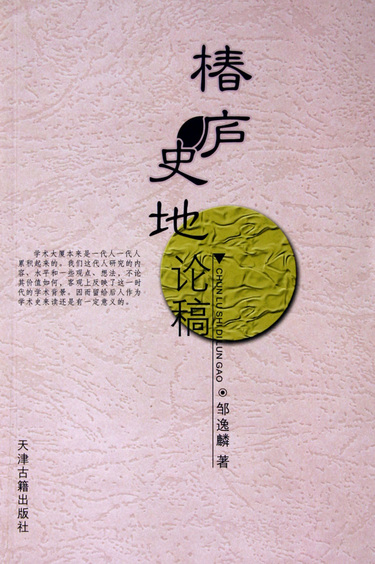 椿庐
史地
论稿
CHUN LU SHI DI LUN GAO
邹逸麟 著
学术大厦本来是一代人一代人
累积起来的。我们这代人研究的内
容、水平和一些观点、想法，不论
其价值如何，客观上反映了这一时
代的学术背景。因而留给后人作为
学术史来读还是有一定意义的。
天津古籍出版社